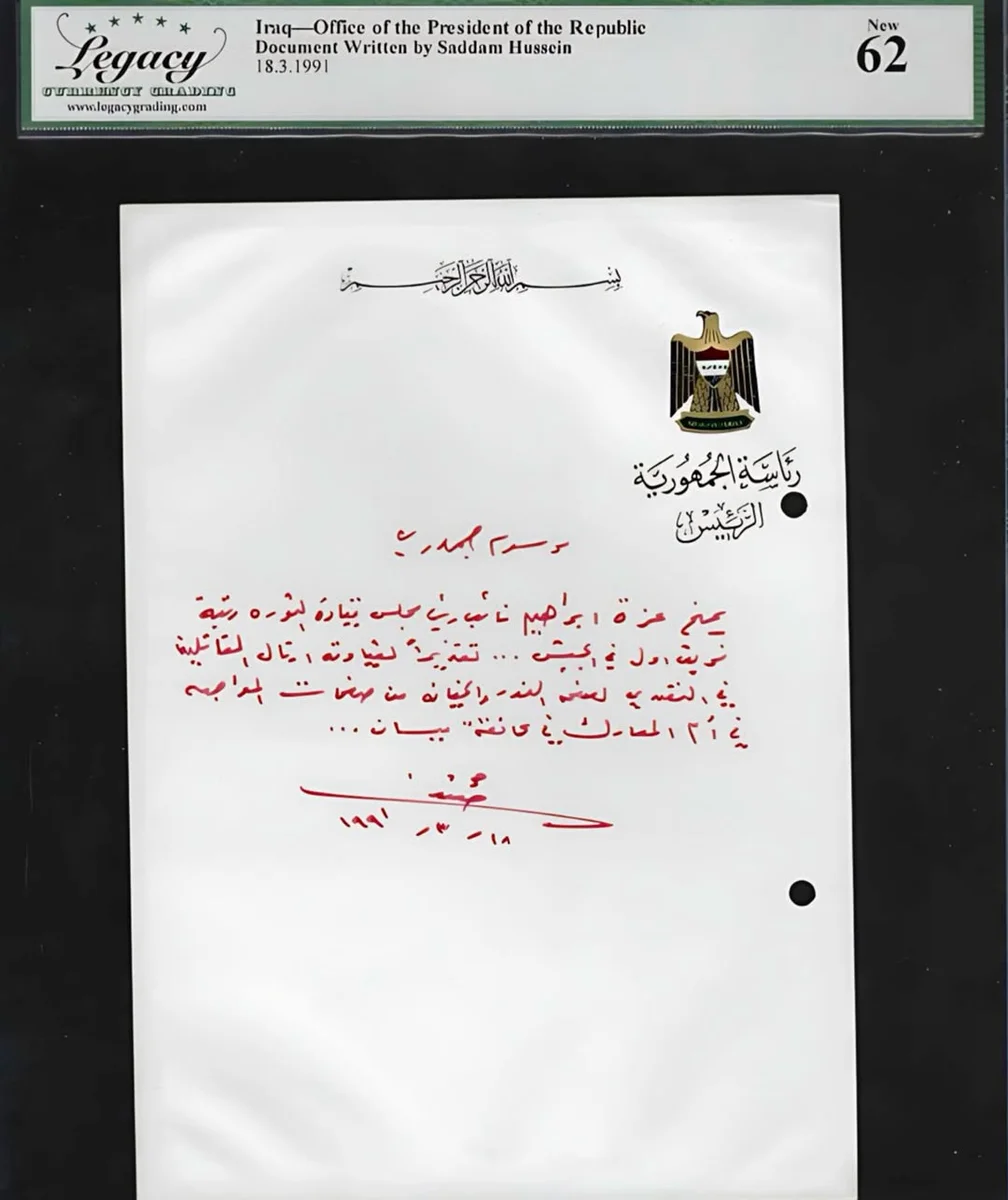 Legacy
CURRENCY GRADING
www.legacygrading.com
Iraq—Office of the President of the Republic
Document Written by Saddam Hussein
18.3.1991
New
62
بسم الله الرحمن الرحيم
رئاسة الجمهورية
الرئيس
مرسوم جمهوري
يمنح عزة ابراهيم نائب رئيس مجلس قيادة الثورة رتبة
فريق اول في الجيش ... تقديراً لقيادته ارتال المقاتلين
في التصدي لصفحة الغدر والخيانه من صفحات المواجهه
في أم المعارك في محافظة ...
١٨ / ٣ / ١٩٩١